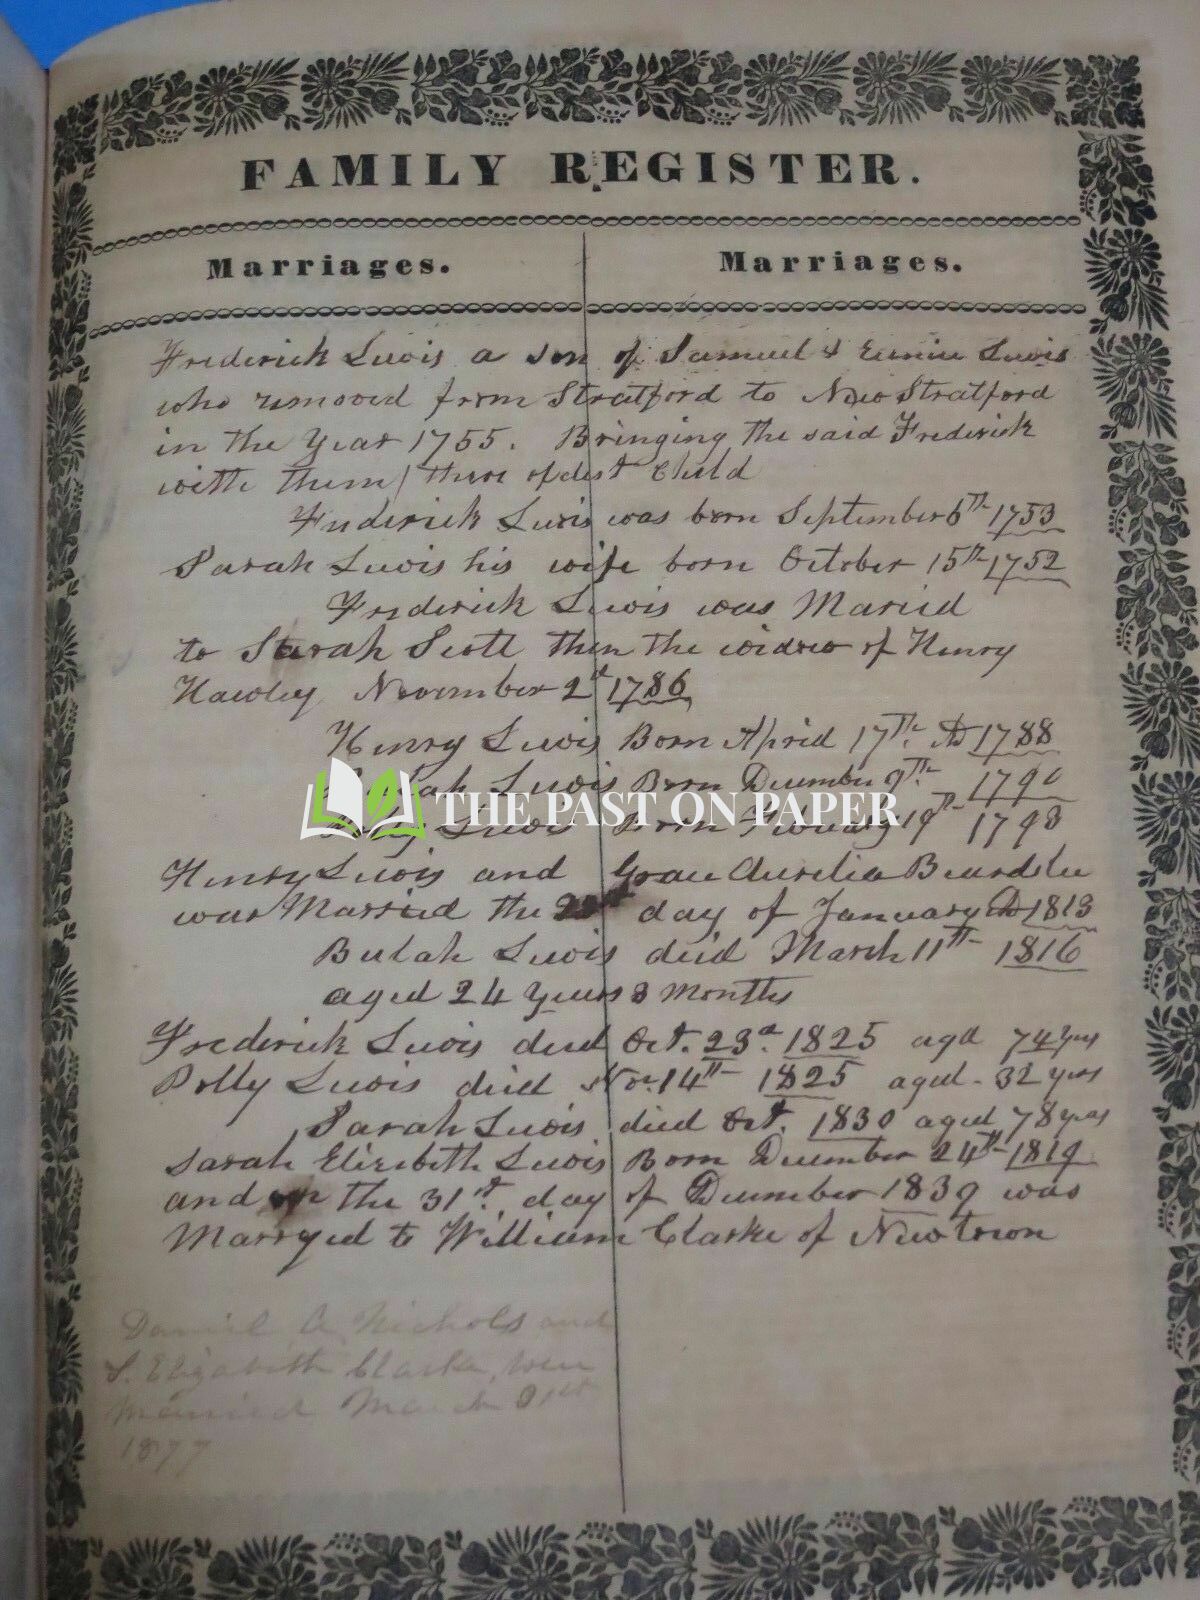 FAMILY REGISTER.
Marriages. Marriages.
Frederick Lewis a son of Samuel & Eunice Lewis
who removed from Stratford to New Stratford
in the Year 1755. Bringing the said Frederick
with them / there oldest Child
Frederick Lewis was born September 6th 1753
Sarah Lewis his wife born October 15th 1752
Frederick Lewis was Maried
to Sarah Scott then the widow of Henry
Hawley November 2d 1786
Henry Lewis Born Aprid 17th AD 1788
Lewis Born December 9th 1790
THE PAST ON PAPER
Lewis Born February 19th 1793
Henry Lewis and Grace Aurelia Beardslee
was Married the day of January AD 1813
Bulah Lewis died March 11th 1816
aged 24 Years 3 Months
Frederick Lewis died Oct. 23d. 1825 agd 74 yrs
Polly Lewis died Nov. 14th 1825 aged 32 yers
Sarah Lewis died Oct. 1830 aged 78 years
Sarah Elizebeth Lewis Born December 24th 1819
and on the 31st. day of December 1839 was
Marryed to William Clarke of Newtown
Daniel A. Nichols and
S. Elizabeth Clarke, were
Married March 21st
1877